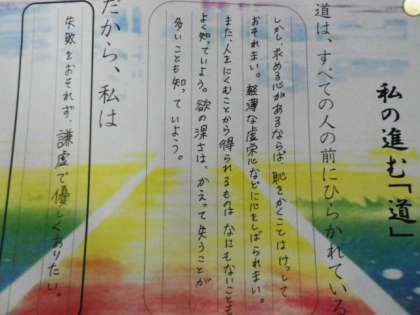 私の進む「道」
道は、すべての人の前にひらかれている
しかし、求める心があるならば、恥をかくことはけっして
おそれまい。軽薄な虚栄心などに心をしばられまい。
また、人をにくむことから得られるものはなにもないことも
よく知っていよう。欲の深さは、かえって失うことが
多いことも知っていよう。
だから、私は
失敗をおそれず、謙虚で優しくありたい。